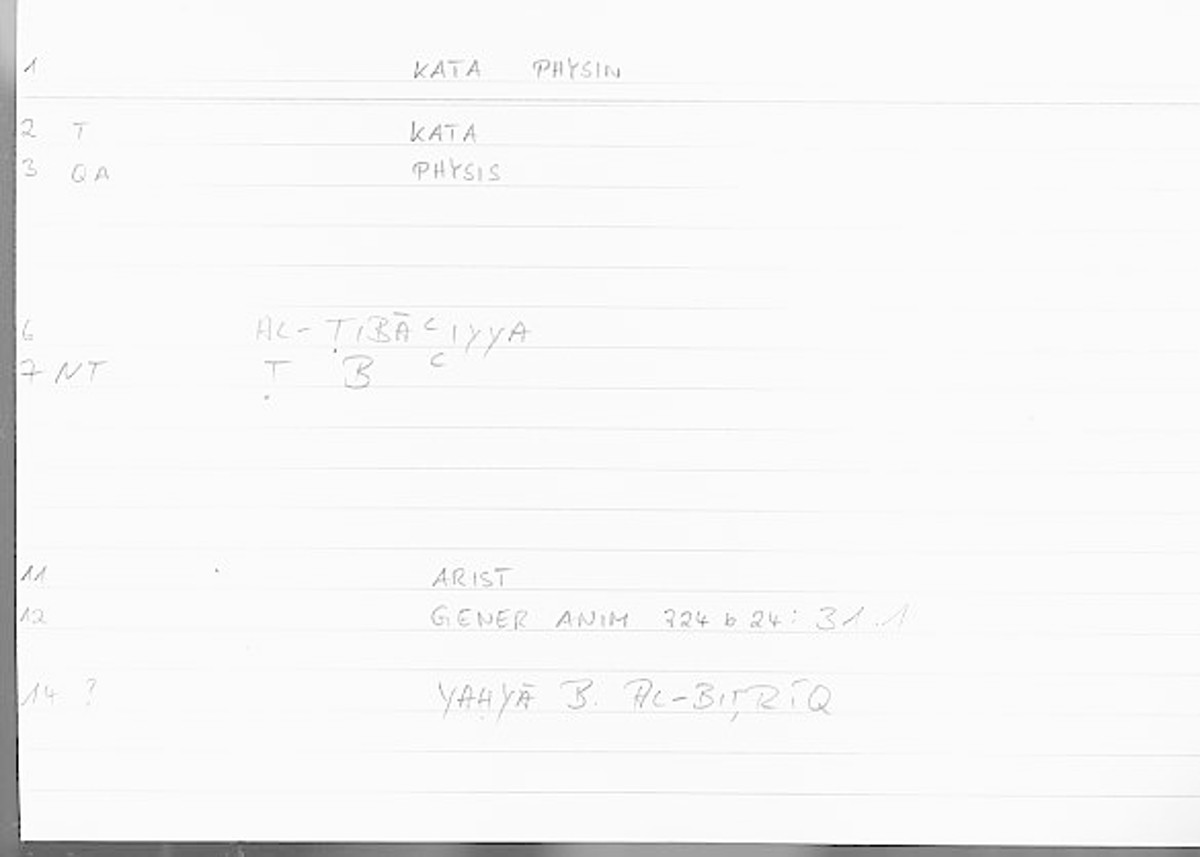 1 KATA PHYSIN
2 T KATA
3 QA PHYSIS
6 AL-ṬIBĀʿIYYA
7 NT Ṭ B ʿ
11 ARIST
12 GENER ANIM 724 b 24: 31.1
14 ? YAḤYĀ B. AL-BIṬRĪQ